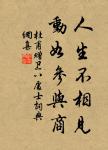 人生不相見
動如參與商
杜甫贈卫八處士詞典
網集